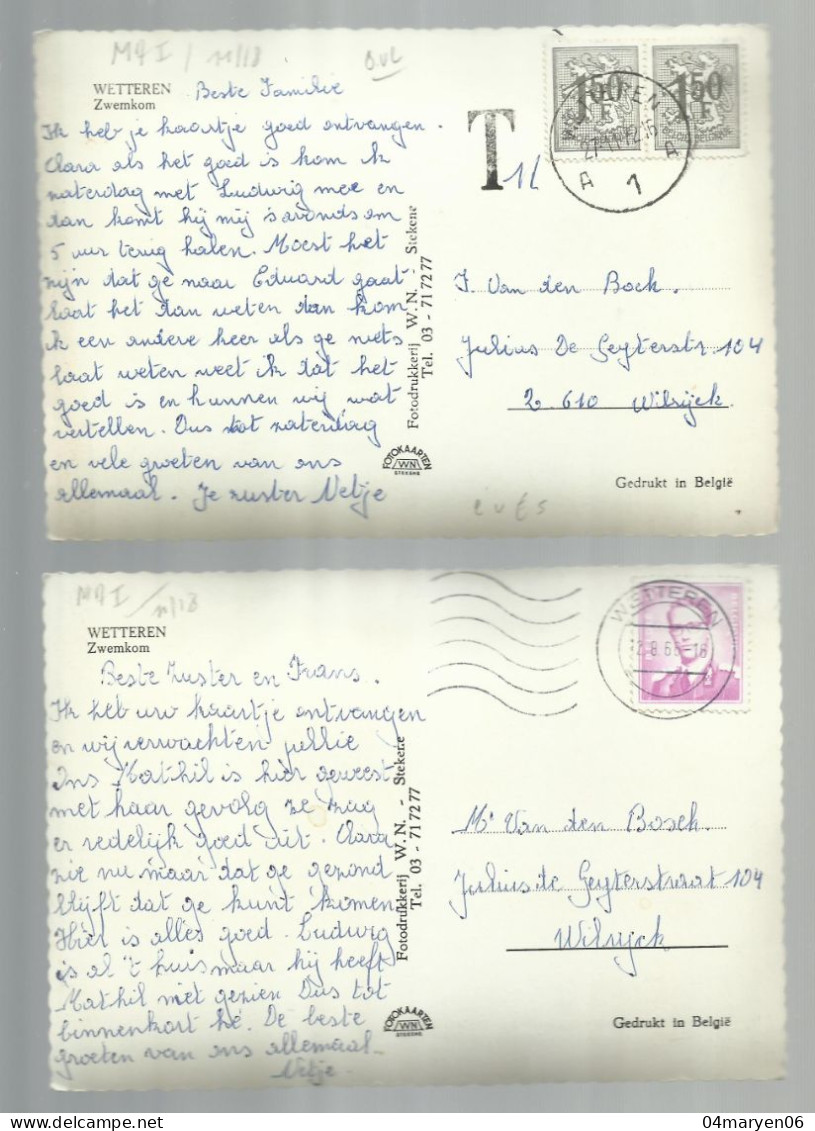 M4 I / 11/18
WETTEREN
Zwemkom
Beste Familie
Ik heb je kaartje goed ontvangen.
Clara als het goed is kom ik
zaterdag met Ludwig mee en
dan komt hij mij s'avonds om
5 uur terug halen. Moest het
zijn dat ge naar Eduard gaat
laat het dan weten dan kom
ik een andere keer als ge niets
laat weten weet ik dat het
goed is en kunnen wij wat
vertellen. Dus tot zaterdag
en vele groeten van ons
allemaal. Je zuster Netje
Fotodrukkerij W. N. - Stekene
Tel. 03 - 71 72 77
FOTOKAARTEN
WN
STEKENE
T
1 50
F
1 50
F
WETTEREN
A 1 A
J. Van den Bosch.
Julius De Geyterstr 104
2.610 Wilrijck
Gedrukt in België
M4 I / 11/18
WETTEREN
Zwemkom
Beste zuster en Frans.
Ik heb uw kaartje ontvangen
en wij verwachten jullie
Ons Mathil is hier geweest
met haar gevolg ze zag
er redelijk goed uit. Clara
zie nu maar dat ge gezond
blijft dat ge kunt komen
Hier is alles goed. Ludwig
is al 't huis maar hij heeft
Mathil niet gezien Dus tot
binnenkort hé. De beste
groeten van ons allemaal
Netje.
Fotodrukkerij W. N. - Stekene
Tel. 03 - 71 72 77
FOTOKAARTEN
WN
STEKENE
WETTEREN
Mr Van den Bosch.
Julius de Geyterstraat 104
Wilrijck
Gedrukt in België
04maryen06